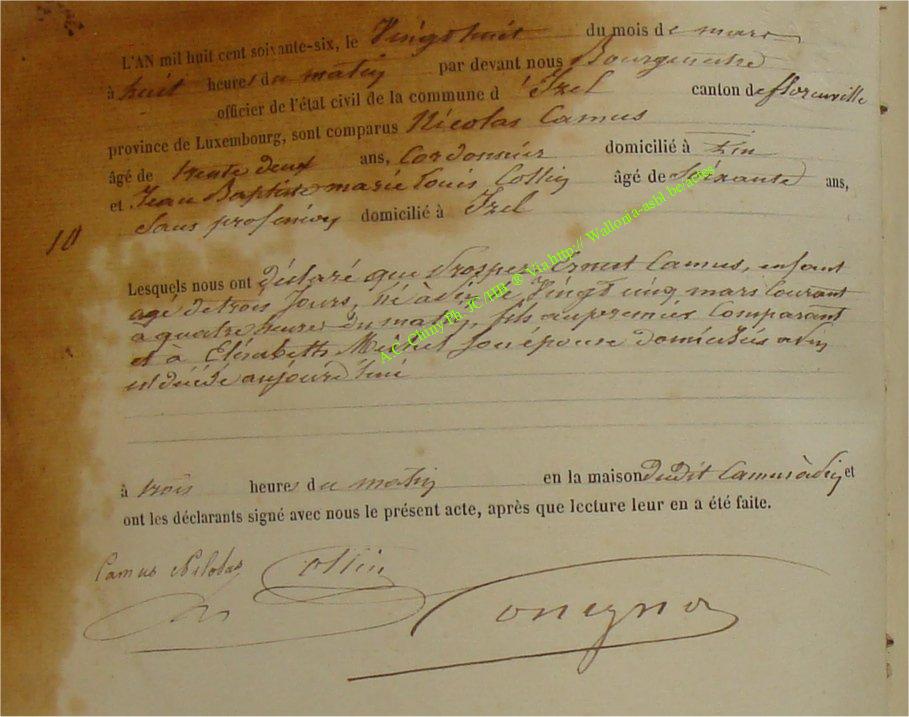 L'AN mil huit cent soixante-six, le Vingt huit du mois de mars
à huit heures du matin par devant nous Bourgmestre
officier de l'état civil de la commune d' Izel canton de florenville
province de Luxembourg, sont comparus Nicolas Camus
âgé de trente deux ans, Cordonnier domicilié à
et Jean Baptiste marie louis Collin âgé de Soixante ans,
Sans profession domicilié à Izel
10
Lesquels nous ont déclaré que Prosper Ernest Camus, enfant
agé de trois jours, né à le Vingt cinq mars Courant
à quatre heures du matin, fils au premier Comparant
et à Elisabeth son épouse domiciliés
est décédé aujourd'hui
à trois heures du matin en la maison dudit Camus à et
ont les déclarants signé avec nous le présent acte, après que lecture leur en a été faite.
Camus Nicolas Collin
A.C. Chiny Ph. JC/HB ® Via http:// Wallonia-asbl.be/actes